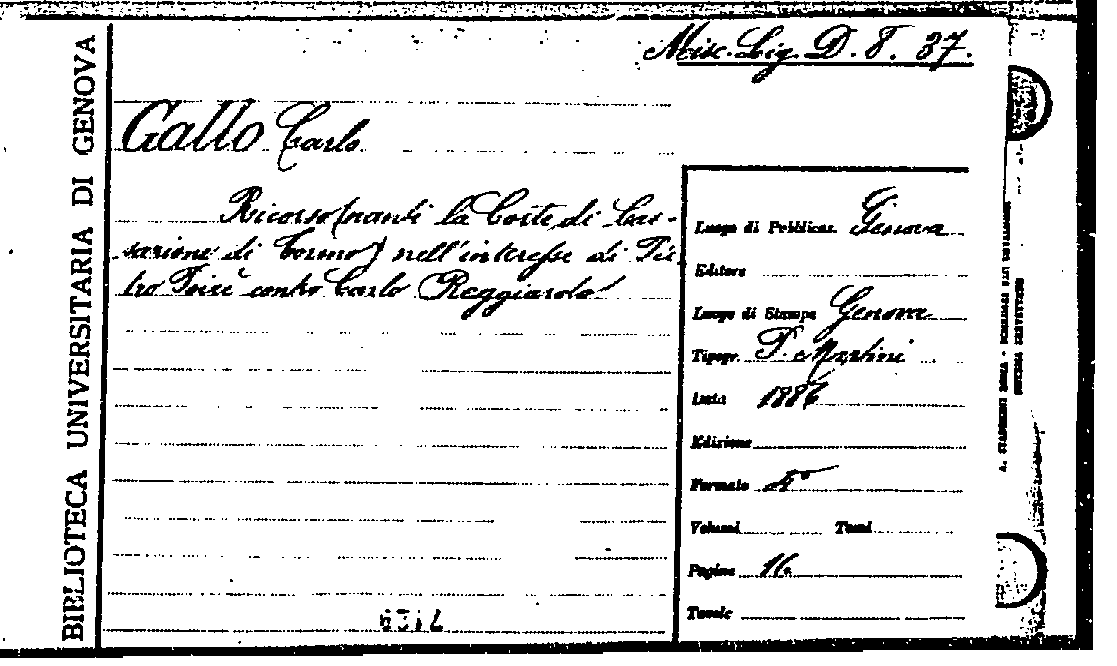 BIBLIOTECA UNIVERSITARIA DI GENOVA
Misc. Lig. D. 8. 37.
Gallo Carlo
Ricorso (nanti la Corte di Cas-
sazione di Torino) nell'interesse di Pie
tro contro Carlo
Luogo di Pubblicaz. Genova
Editore
Luogo di Stampa Genova
Tipogr. P. Martini
Data 1886
Edizione
Formato 4°
Volumi Tomi
Pagine 16
Tavole